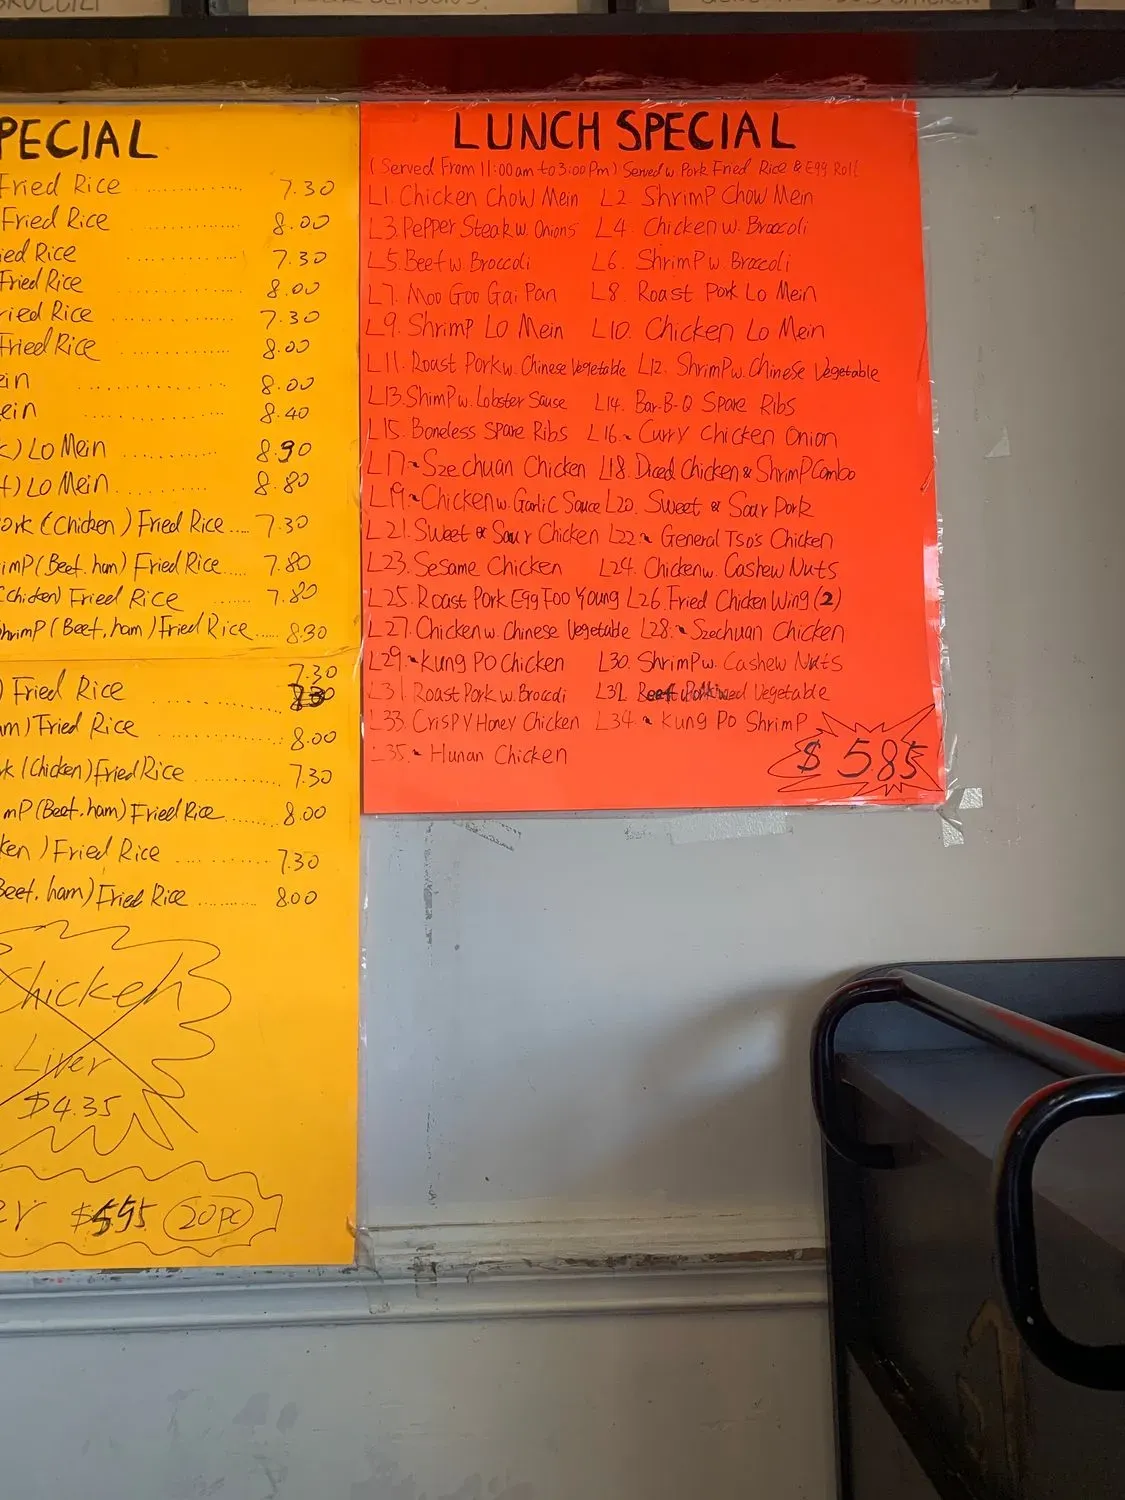 BROCCOLI
PECIAL
Fried Rice .................. 7.30
Fried Rice .................. 8.00
ied Rice .................. 7.30
Fried Rice .................. 8.00
ried Rice .................. 7.30
Fried Rice .................. 8.00
ein .................. 8.00
ein .................. 8.40
) Lo Mein .................. 8.90
) Lo Mein .................. 8.80
ork (Chicken) Fried Rice..... 7.30
imP (Beef. ham) Fried Rice..... 7.80
(Chicken) Fried Rice ....... 7.80
ShrimP (Beef, ham) Fried Rice..... 8.30
7.30
) Fried Rice ..................
am) Fried Rice .................. 8.00
rk (Chicken) Fried Rice .................. 7.30
mP (Beef. ham) Fried Rice .......... 8.00
ken) Fried Rice ............ 7.30
Beef. ham) Fried Rice .......... 8.00
Chicken
Liver
$4.35
er 20PC
LUNCH SPECIAL
(Served From 11:00am to 3:00Pm) Served w. Pork Fried Rice & Egg Roll
L1. Chicken Chow Mein L2. ShrimP Chow Mein
L3. PePPer Steak w. Onions L4. Chicken w. Broccoli
L5. Beef w. Broccoli L6. ShrimP w. Broccoli
L7. Moo Goo Gai Pan L8. Roast Pork Lo Mein
L9. ShrimP Lo Mein L10. Chicken Lo Mein
L11. Roast Pork w. Chinese Vegetable L12. ShrimP w. Chinese Vegetable
L13. ShimP w. Lobster Sauce L14. Bar-B-Q SPare Ribs
L15. Boneless SPare Ribs L16. Curry Chicken Onion
L17. Szechuan Chicken L18. Diced Chicken & ShrimP Combo
L19. Chicken w. Garlic Sauce L20. Sweet & Sour Pork
L21. Sweet & Sour Chicken L22. General Tso's Chicken
L23. Sesame Chicken L24. Chicken w. Cashew Nuts
L25. Roast Pork Egg Foo Young L26. Fried Chicken Wing (2)
L27. Chicken w. Chinese Vegetable L28. Szechuan Chicken
L29. Kung Po Chicken L30. ShrimP w. Cashew Nuts
L31. Roast Pork w. Broccoli L32. Vegetable
L33. CrisPy Honey Chicken L34. Kung Po ShrimP
L35. Hunan Chicken
$5.85